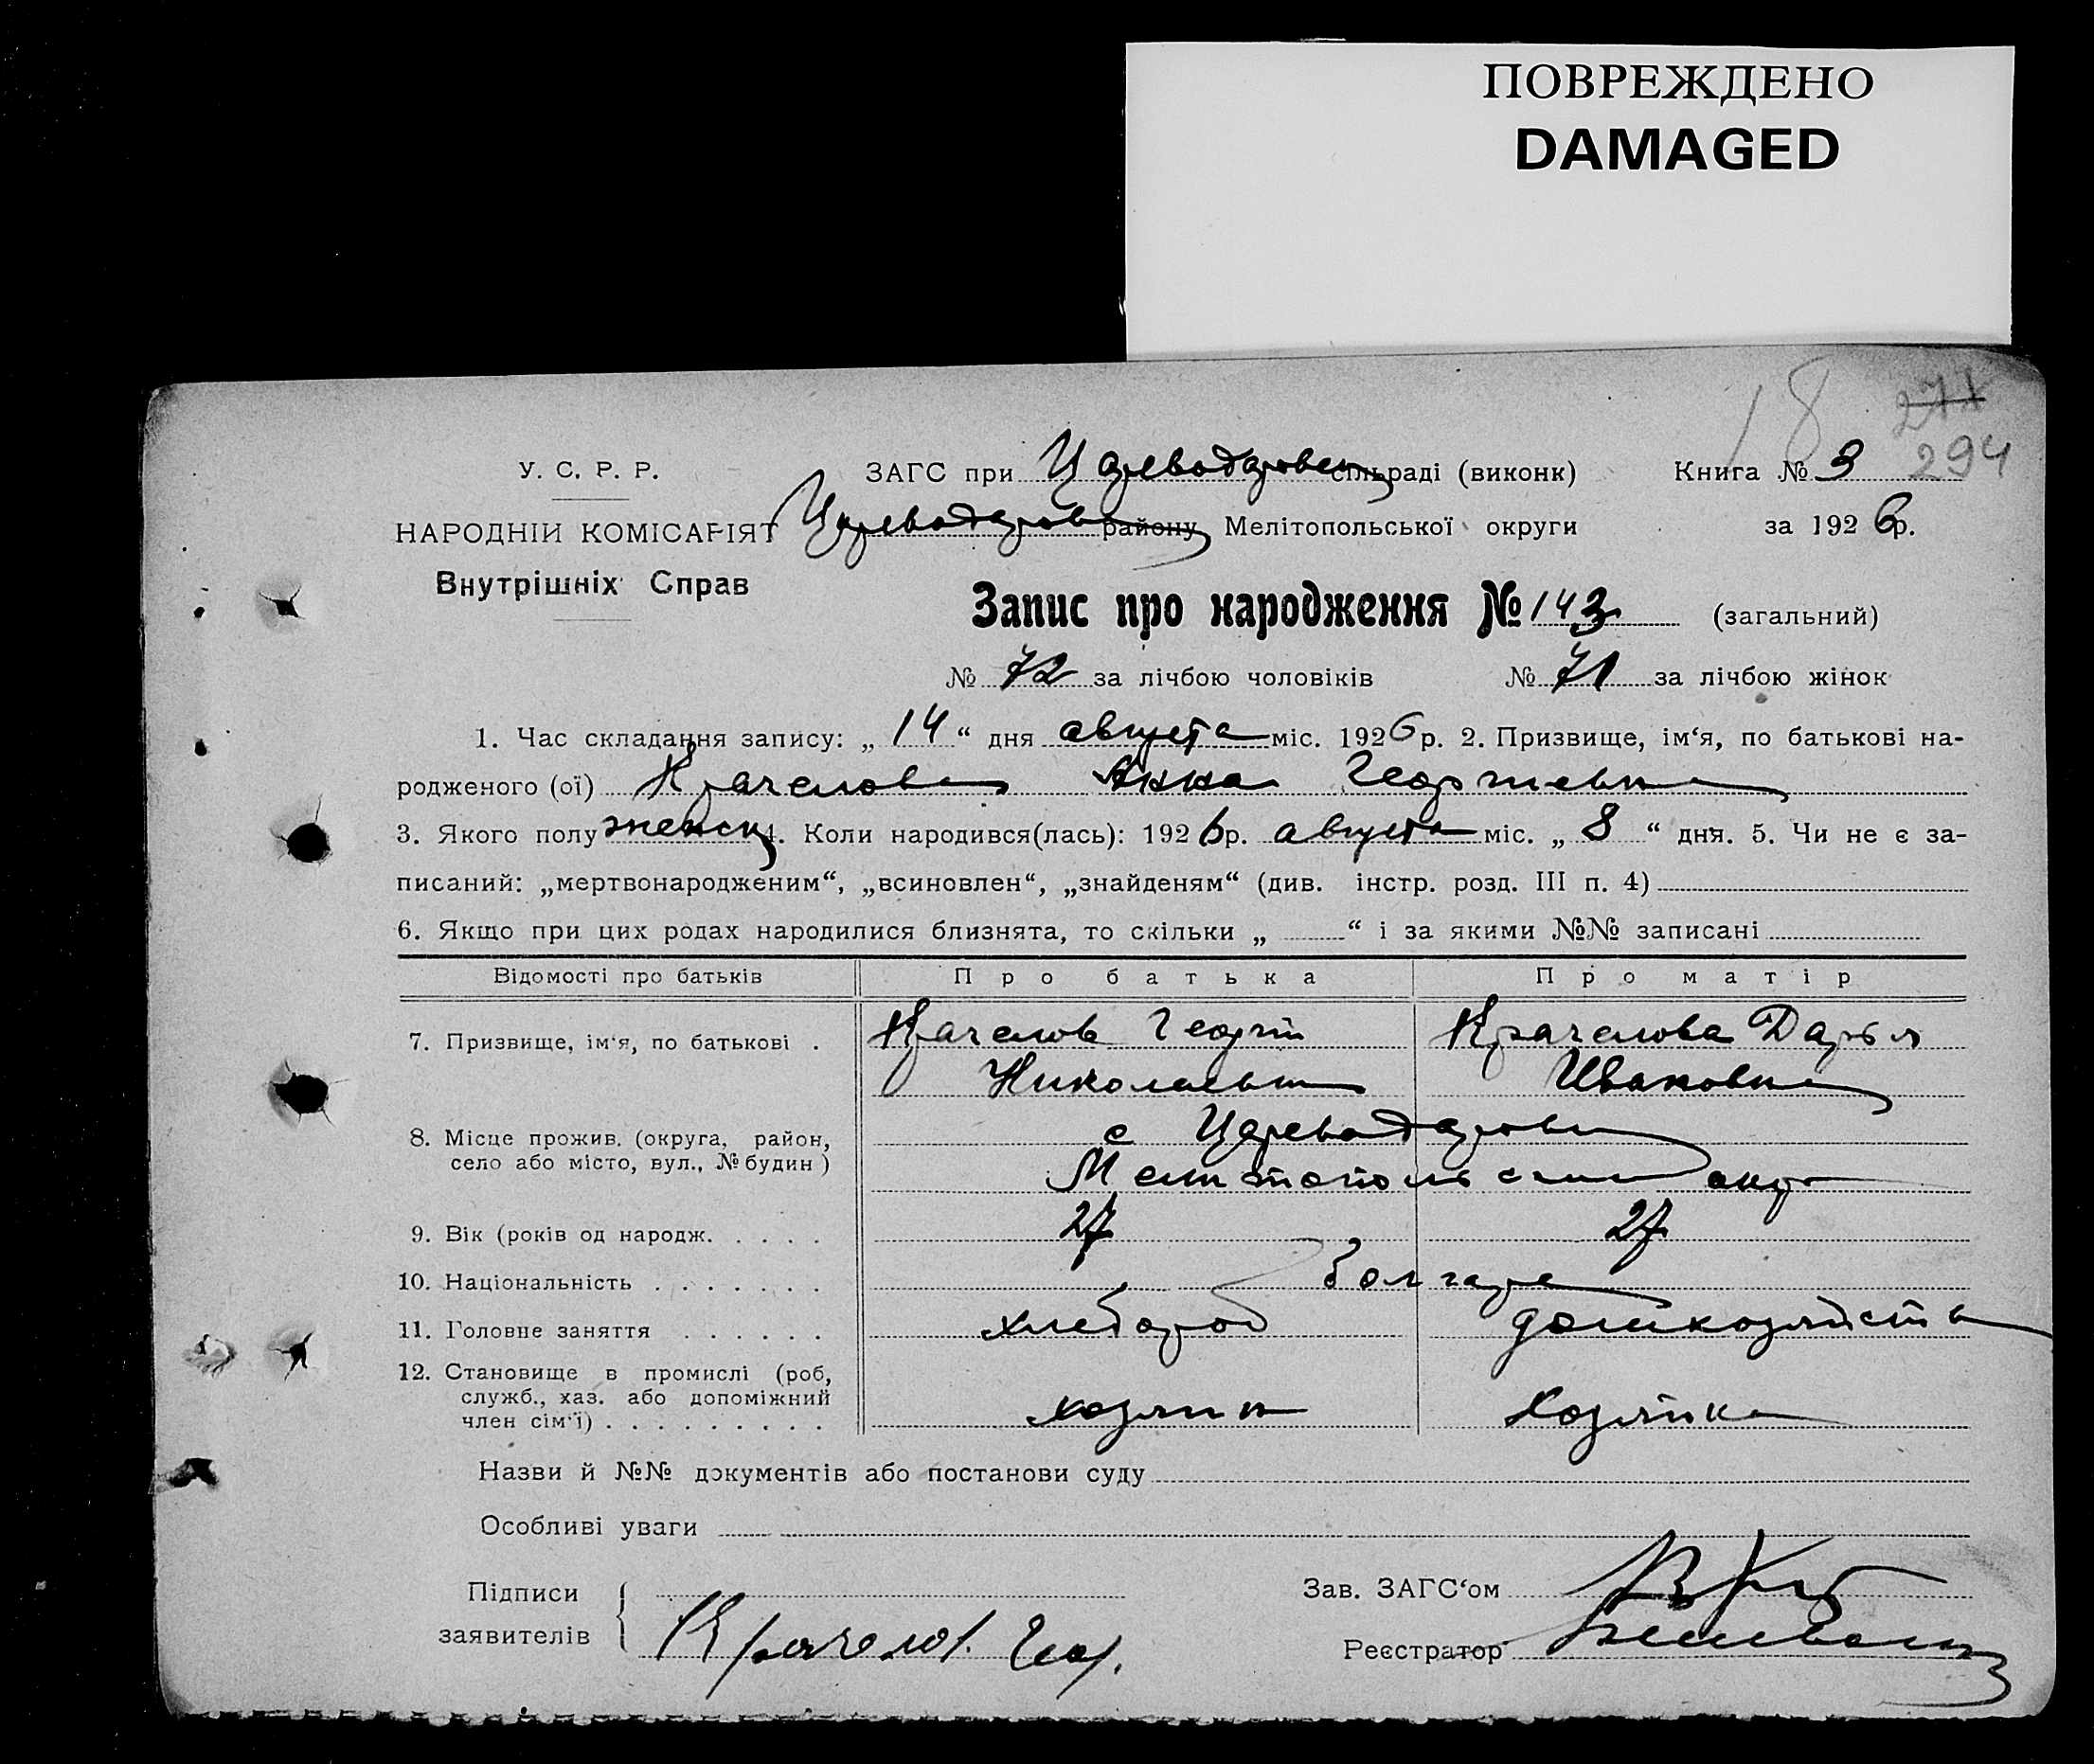 ПОВРЕЖДЕНО
DAMAGED
18 271
294
У. С. Р. Р. ЗАГС при Цареводаровск сільраді (виконк) Книга № 3
НАРОДНІЙ КОМІСАРІЯТ Цареводаров району Мелітопольської округи за 1926 р.
Внутрішніх Справ
Запис про народження № 143 (загальний)
№ 72 за лічбою чоловіків № 71 за лічбою жінок
1. Час складання запису: „ 14 “ дня августа міс. 1926 р. 2. Призвище, ім‘я, по батькові на-
родженого (ої) Крачелова Анна Георгиевна
3. Якого полу женск 4. Коли народився(лась): 1926 р. августа міс. „ 8 “ дня. 5. Чи не є за-
писаний: „мертвонародженим“, „всиновлен“, „знайденям“ (див. інстр. розд. III п. 4)
6. Якщо при цих родах народилися близнята, то скільки „ “ і за якими №№ записані
Відомості про батьків Про батька Про матір
7. Призвище, ім‘я, по батькові . Крачелов Георгий Крачелова Дарья
Николаевич Ивановна
8. Місце прожив. (округа, район, с Цареводаровка
село або місто, вул., № будин ) Мелитопольский окр
9. Вік (років од народж. . . . . 27 27
10. Національність . . . . . . . болгаре
11. Головне заняття . . . . . . хлебороб домхозяйств
12. Становище в промислі (роб,
служб., хаз. або допоміжний
член сім‘ї) . . . . . . . . . хозяин хозяйка
Назви й №№ документів або постанови суду
Особливі уваги
Підписи Зав. ЗАГС‘ом
заявителів Крачелов Геор. Реєстратор